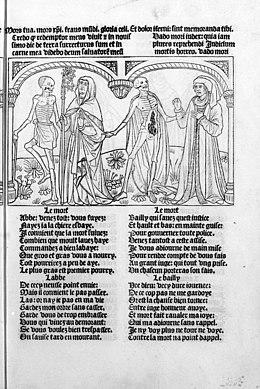 Mors tua. mors xpi. fraus mūdi. gloria celi. Et dolor iferni: sint memoranda tibi.
Credo q̄ redemptor meus viuit ⁊ in nouis
simo die de terra surrecturus sum et in
carne mea videbo deum saluatorē meū
Vado mori iudex: quia iam
plures reprehendi Judicium
mortis horreo. vado mori
Le mort
Abbe: venez tost: vous fuyez:
Nayez ia la chiere esbaye.
Il conuient que la mort suiuez:
Combien que moult lauez haye
Commandez a dieu labaye:
Que gros et gras vous a nourry.
Tost pourrirez a peu de aye.
Le plus gras est premier pourry.
Labbe
De cecy neusse point enuie:
Mais il conuient le pas passer.
Las: or nay ie pas en ma vie
Garde mon ordre sans casser.
Garde vous de trop embrasser
Vous qui viuez au demorant:
Se vous voulez bien trespasser.
On sauise tard en mourant.
Le mort
Bailly qui sauez quest iustice
Et hault et bas: en mainte guise:
Pour gouuerner toute police.
Venez tantost a ceste assise.
Je vous adiourne de main mise
Pour rendre compte de vous fais
Au grant iuge: qui tout vng prise.
Un chascun portera son fais.
Le bailly
Hee dieu: vecy dure iournee:
De ce cop pas ne me gardoye
Or est la chanse bien tornee:
Entre iuges honneur auoye:
Et mort fait raualer ma ioye:
Qui ma adiourne sans rappel.
Je ny voy plus ne tour ne voye.
Contre la mort na point dappel.